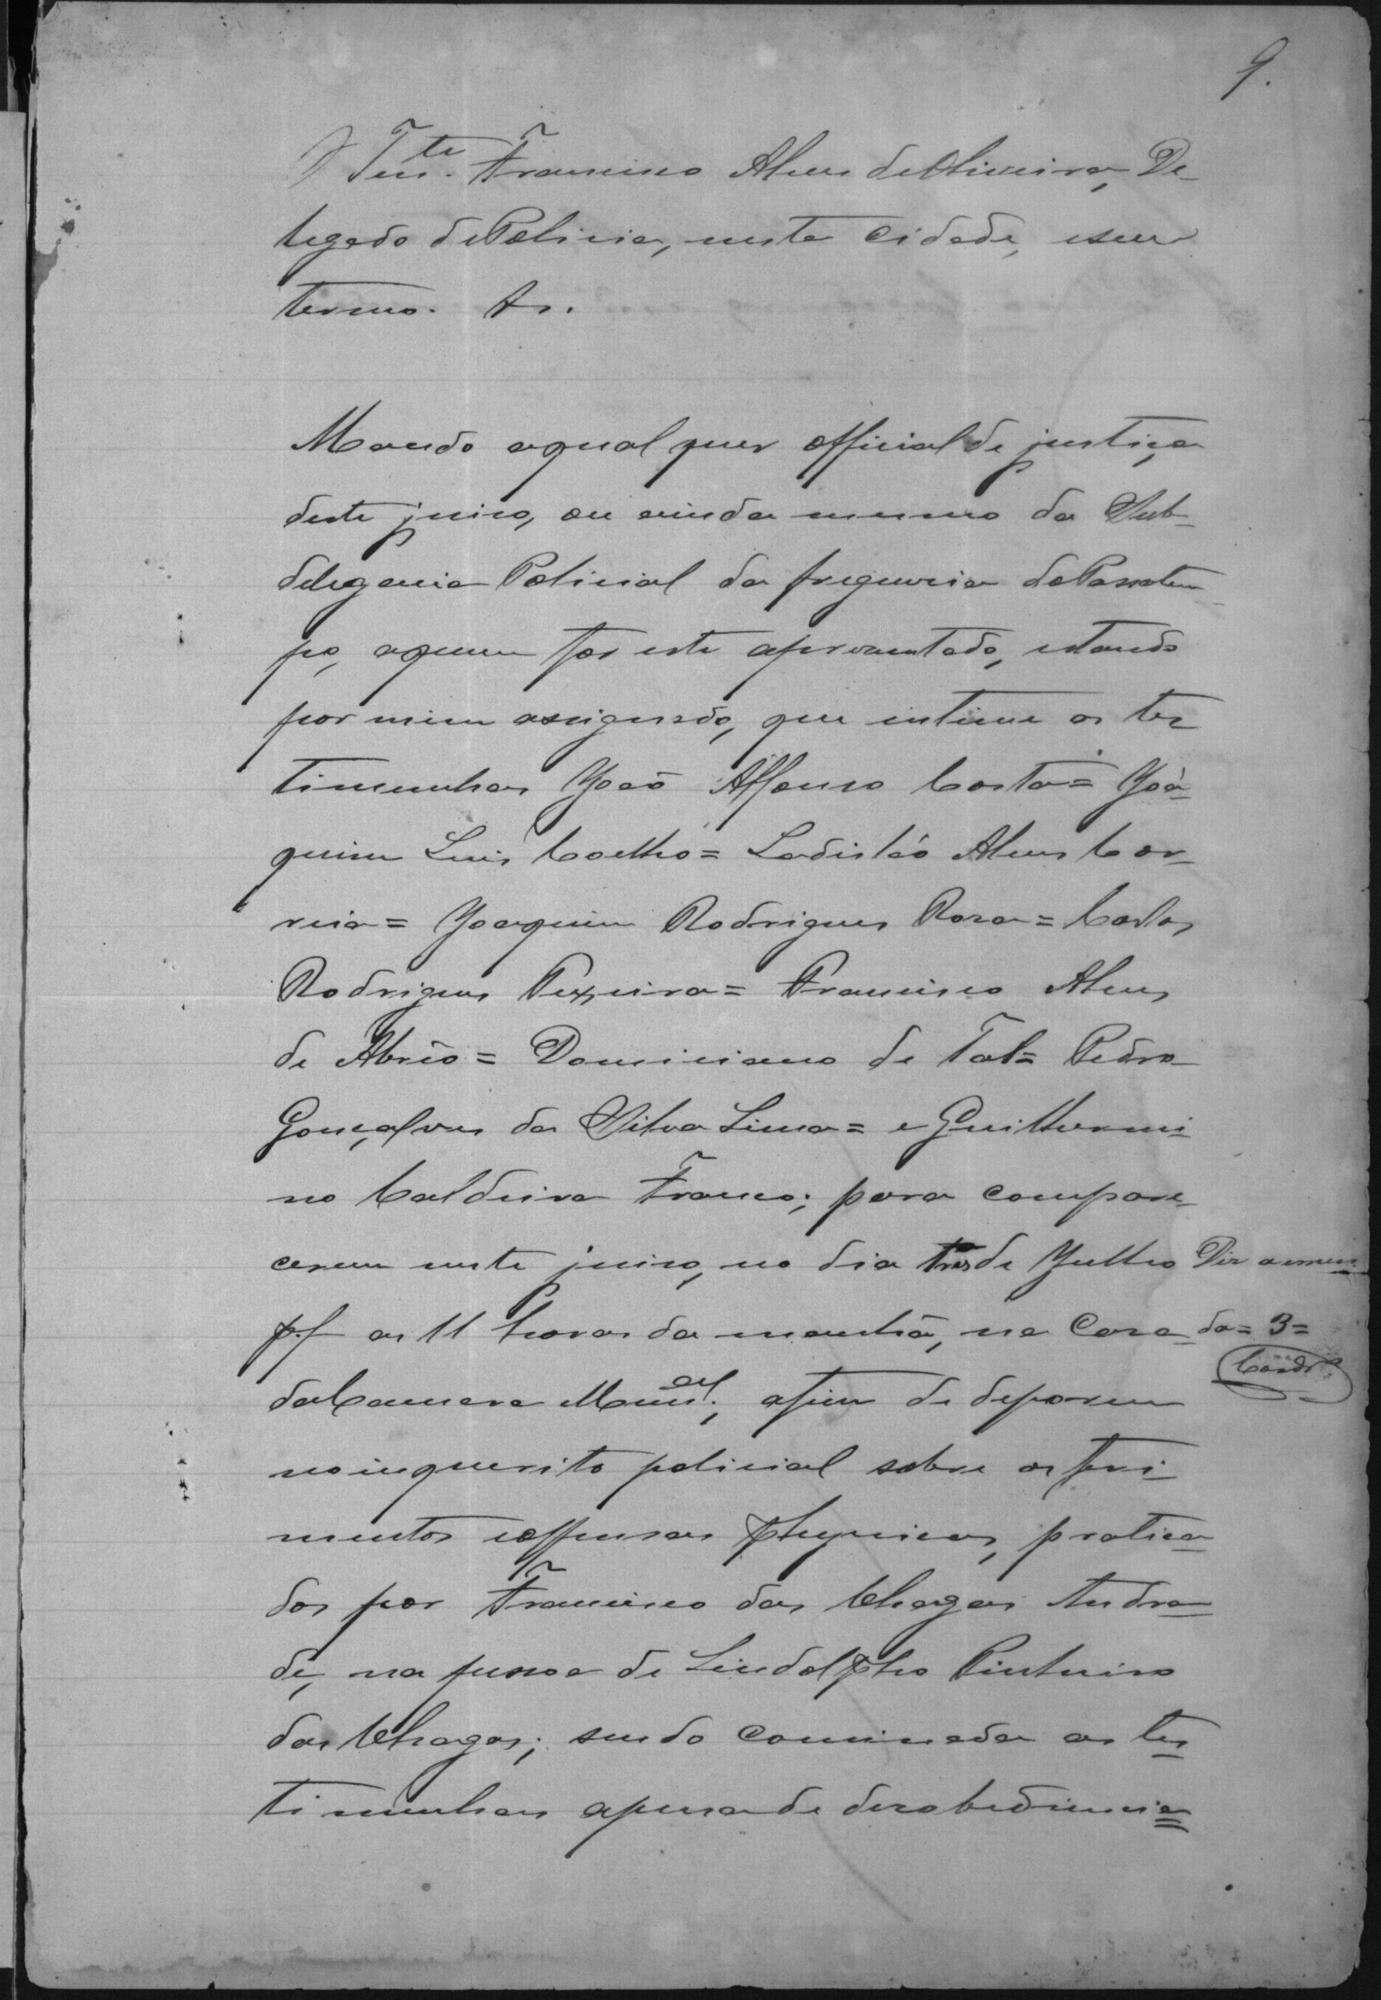 9.
O Tenᵗᵉ. Francisco Alves de Oliveira, De-
legado de Policia, nesta cidade, e seu
termo. &.
Mando a qual quer official de justiça
deste juiso, ou ainda mesmo da Sub-
delegacia Policial da freguesia do Passatem-
po, a quem fôr este apresentado, estando
por mim assignado, que intime as tes
timunhas João Affonso Costa = Joa-
quim Luis Coelho = Ladisláo Alves Cor-
reia = Joaquim Rodrigues Rosa = Carlos
Rodrigues Texeira = Francisco Alves
de Abrêo = Domiciano de Tal = Pedro
Gonçalves da Silva Lima = e Guilhermi-
no Caldeira Franco; para compare-
cerem neste juiso, no dia tres de Julho
p.f. as 11 horas da manhã, na Casa
da Camara Munᵃˡ.; afim de deporem
no inquerito policial sobre os feri-
mentos e offensas physicas, pratica-
dos por Francisco das Chagas Andra-
de, na pessoa de Lindolpho Pinheiro
das Chagas; sendo cominada as tes
timunhas a pena de desobediencia
Diz a emen
da = 3 =